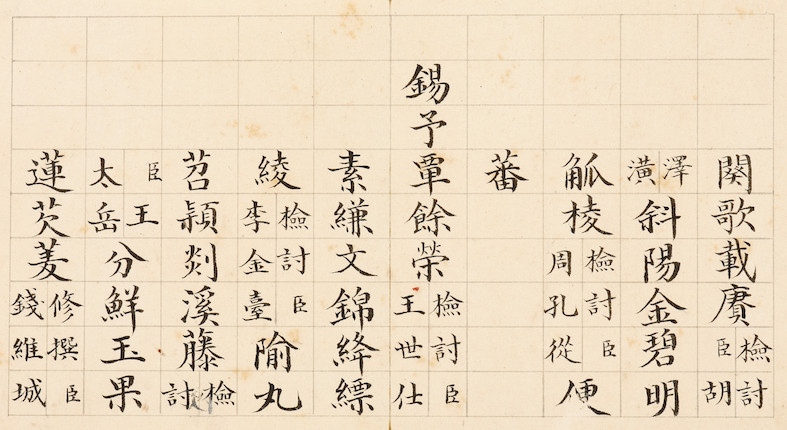 闋歌載賡檢討臣胡
澤潢斜陽金碧明
觚棱檢討臣周孔從便
蕃
錫予覃餘榮檢討臣王世仕
素縑文錦絳縹
綾檢討臣李金臺隃丸
苕穎剡溪藤檢討
臣王太岳分鮮玉果
蓮芡菱修撰臣錢維城